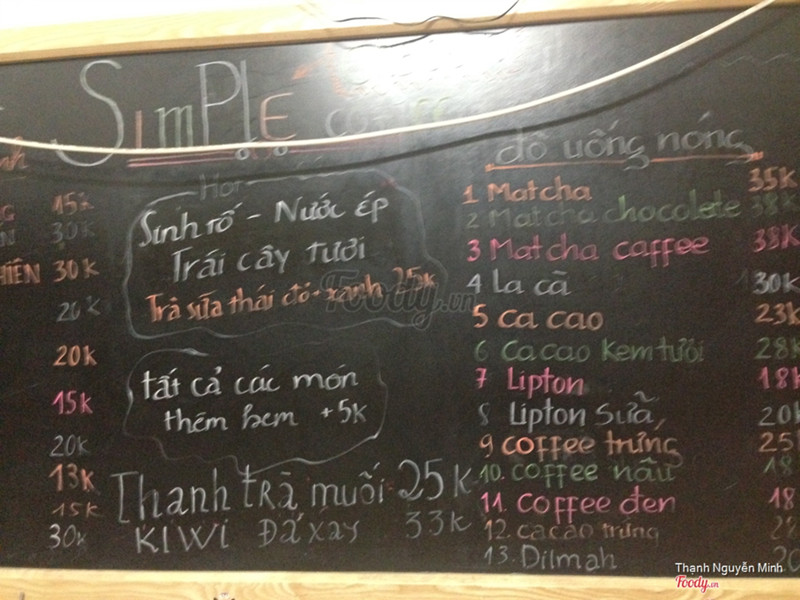 SimPLE coffee
15k
30k
HIÊN 30k
20k
20k
15k
20k
13k
15k
30k
Hot
Sinh tố - Nước ép
Trái cây tươi
Trà sữa thái đỏ-xanh 25k
tất cả các món
thêm kem +5k
Thanh trà muối 25k
KIWI Đá xay 33k
đồ uống nóng
1 Matcha 35k
2 Matcha chocolete 38k
3 Matcha caffee 38k
4 La cã 30k
5 Ca cao 23k
6 Cacao kem tươi 28k
7 Lipton 18k
8 Lipton Sữa, 20k
9 coffee trứng 25
10. coffee nâu 18
11. Coffee đen 18
12. cacao trứng 28
13. Dilmah 20
Foody.vn
Thanh Nguyễn Minh
Foody.vn